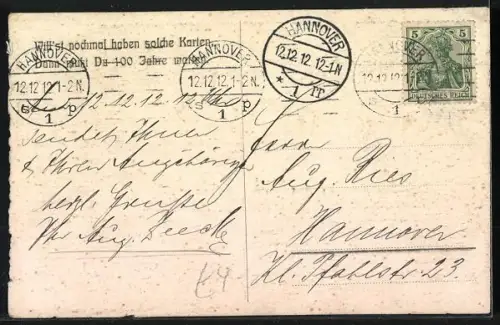 Willst nochmal haben solche Karten
Dann mußt Du 100 Jahre warten
HANNOVER
12.12.12.1-2N.
1 p
HANNOVER
12.12.12.1-2N.
S 1 p
HANNOVER
12.12.12.12-1N
* 1 *
HANNOVER
12.12.12
1 p
5 5
DEUTSCHES REICH
12.12.12. 12 Uhr
sendet Ihnen
& Ihren Angehörigen
herzl. Grüsse
Ihr Aug.
Herrn
Aug. Ries
Hannover
Kl. Pfahlstr 23.